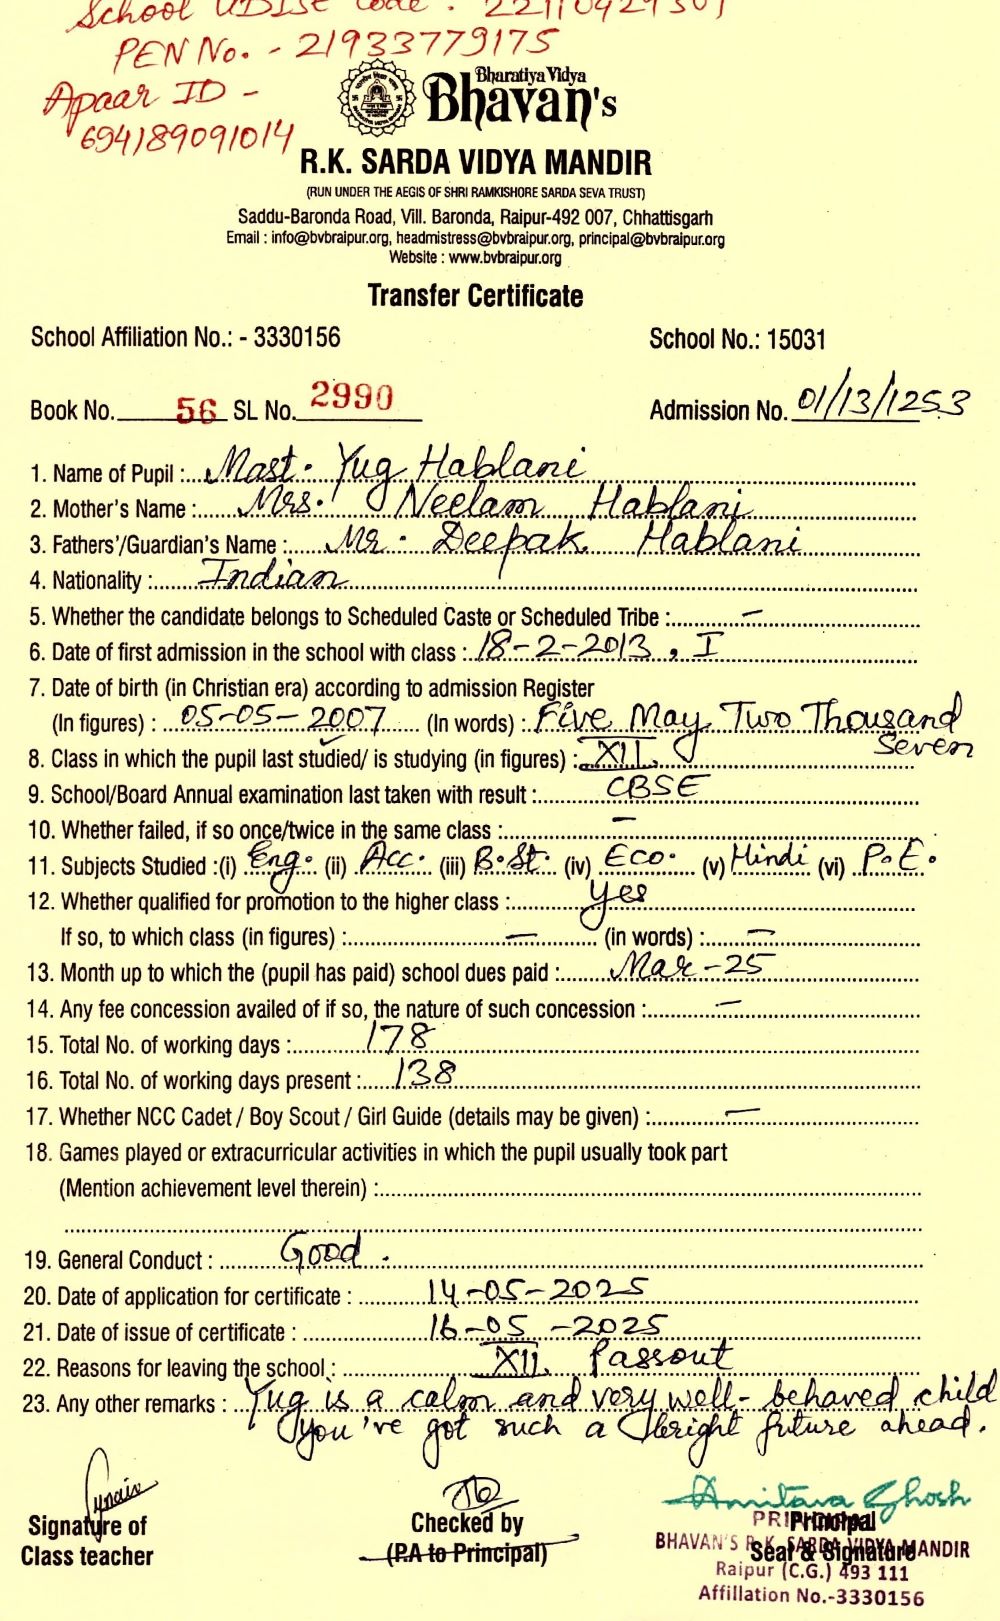 School UDISE Code : 22110429301
PEN No. - 21933779175
Apaar ID -
694189091014
Bharatiya Vidya
Bhavan's
R.K. SARDA VIDYA MANDIR
(RUN UNDER THE AEGIS OF SHRI RAMKISHORE SARDA SEVA TRUST)
Saddu-Baronda Road, Vill. Baronda, Raipur-492 007, Chhattisgarh
Email : info@bvbraipur.org, headmistress@bvbraipur.org, principal@bvbraipur.org
Website : www.bvbraipur.org
Transfer Certificate
School Affiliation No.: - 3330156 School No.: 15031
Book No. 56 SL No. 2990 Admission No. 01/13/1253
1. Name of Pupil : Mast. Yug Hablani
2. Mother's Name : Mrs. Neelam Hablani
3. Fathers'/Guardian's Name : Mr. Deepak Hablani
4. Nationality : Indian
5. Whether the candidate belongs to Scheduled Caste or Scheduled Tribe : —
6. Date of first admission in the school with class : 18-2-2013, I
7. Date of birth (in Christian era) according to admission Register
(In figures) : 05-05-2007 (In words) : Five May Two Thousand
Seven
8. Class in which the pupil last studied/ is studying (in figures) : XII
9. School/Board Annual examination last taken with result : CBSE
10. Whether failed, if so once/twice in the same class : —
11. Subjects Studied :(i) Eng. (ii) Acc. (iii) B.St. (iv) Eco. (v) Hindi (vi) P.E.
12. Whether qualified for promotion to the higher class : Yes
If so, to which class (in figures) : — (in words) : —
13. Month up to which the (pupil has paid) school dues paid : Mar-25
14. Any fee concession availed of if so, the nature of such concession : —
15. Total No. of working days : 178
16. Total No. of working days present : 138
17. Whether NCC Cadet / Boy Scout / Girl Guide (details may be given) : —
18. Games played or extracurricular activities in which the pupil usually took part
(Mention achievement level therein) :
19. General Conduct : Good.
20. Date of application for certificate : 14-05-2025
21. Date of issue of certificate : 16-05-2025
22. Reasons for leaving the school : XII Passout
23. Any other remarks : Yug is a calm and very well-behaved child
you've got such a bright future ahead.
Amitava Ghosh
Signature of Checked by Principal
Class teacher (P.A to Principal) Seal & Signature
PRINCIPAL
BHAVAN'S R.K. SARDA VIDYA MANDIR
Raipur (C.G.) 493 111
Affillation No.-3330156